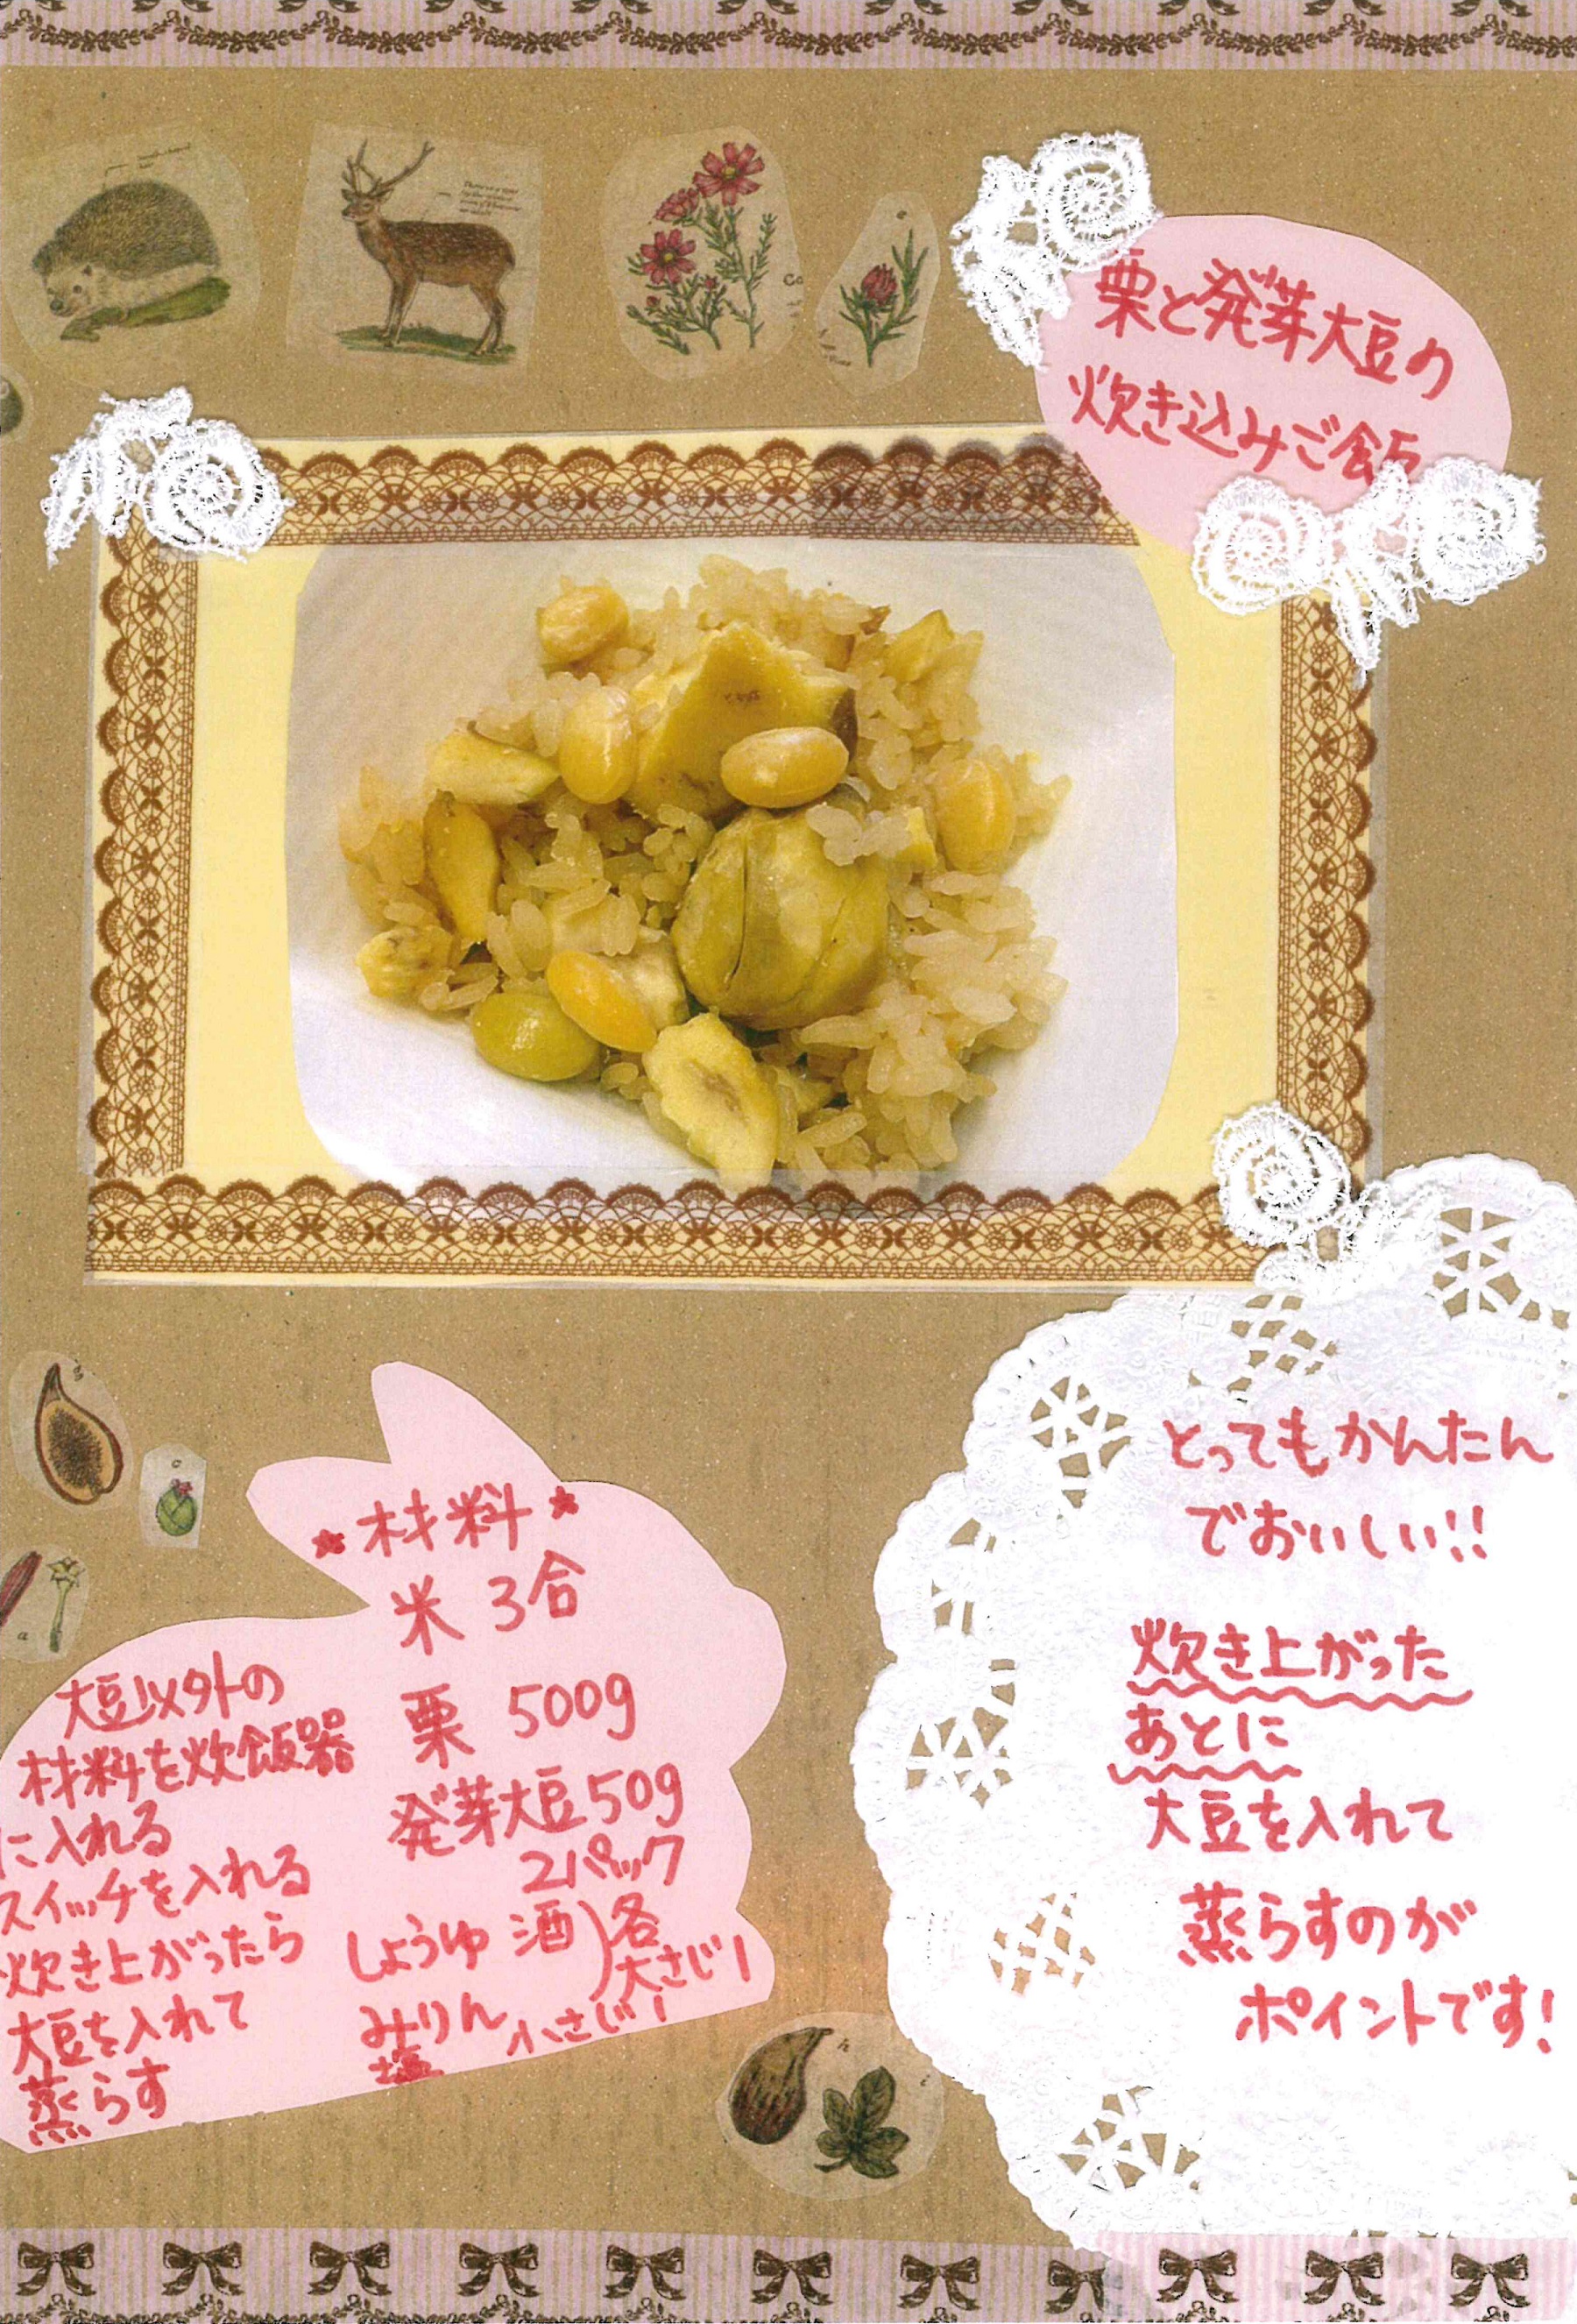 栗と発芽大豆の
炊き込みご飯
★材料★
米 3合
栗 500g
発芽大豆50g
2パック
しょうゆ 酒)各
大さじ1
みりん 小さじ1
塩
大豆以外の
材料を炊飯器
に入れる
スイッチを入れる
炊き上がったら
大豆を入れて
蒸らす
とってもかんたん
でおいしい!!
炊き上がった
あとに
大豆を入れて
蒸らすのが
ポイントです!